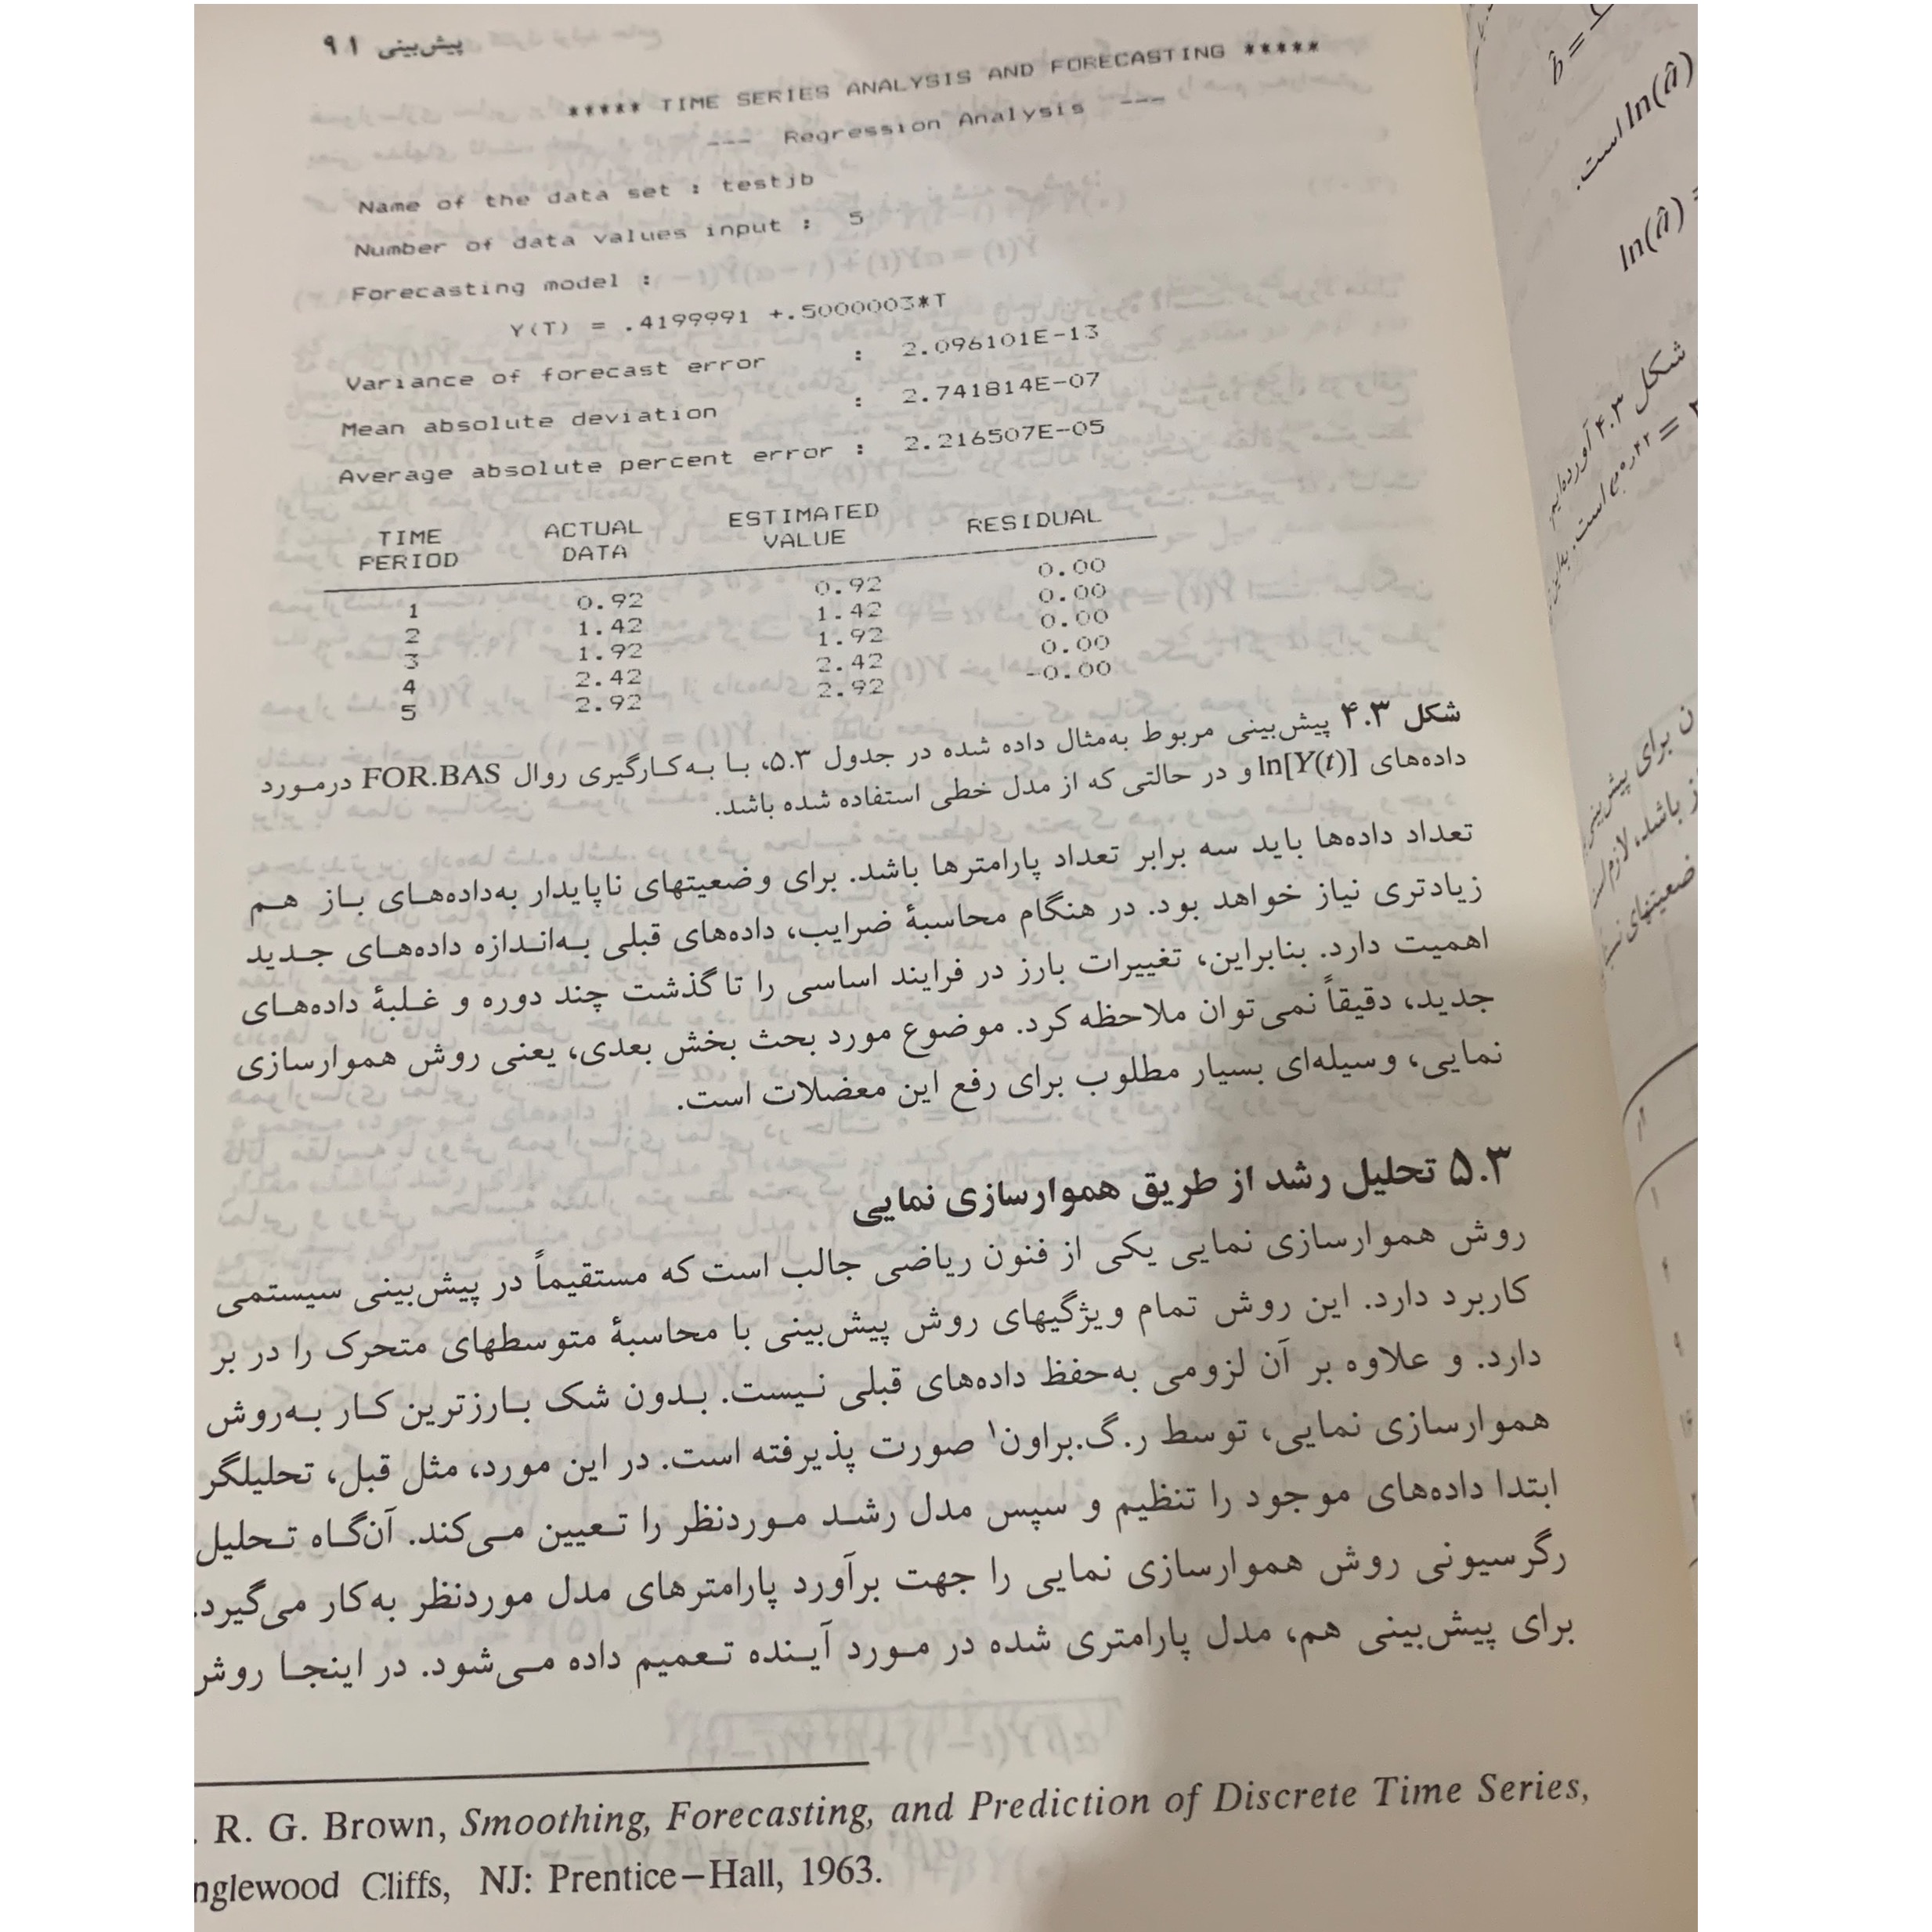 پیش‌بینی ۹۱
***** TIME SERIES ANALYSIS AND FORECASTING *****
--- Regression Analysis ---
Name of the data set : testjb
Number of data values input : 5
Forecasting model :
Y(T) = .4199991 +.5000003*T
Variance of forecast error : 2.096101E-13
Mean absolute deviation : 2.741814E-07
Average absolute percent error : 2.216507E-05
TIME PERIOD ACTUAL DATA ESTIMATED VALUE RESIDUAL
1 0.92 0.92 0.00
2 1.42 1.42 0.00
3 1.92 1.92 0.00
4 2.42 2.42 0.00
5 2.92 2.92 -0.00
شکل ۴.۳ پیش‌بینی مربوط به‌مثال داده شده در جدول ۵.۳، با به‌کارگیری روال FOR.BAS درمورد
داده‌های ln[Y(t)] و در حالتی که از مدل خطی استفاده شده باشد.
تعداد داده‌ها باید سه برابر تعداد پارامترها باشد. برای وضعیتهای ناپایدار به‌داده‌های باز هم
زیادتری نیاز خواهد بود. در هنگام محاسبهٔ ضرایب، داده‌های قبلی به‌اندازه داده‌های جدید
اهمیت دارد. بنابراین، تغییرات بارز در فرایند اساسی را تا گذشت چند دوره و غلبهٔ داده‌های
جدید، دقیقاً نمی‌توان ملاحظه کرد. موضوع مورد بحث بخش بعدی، یعنی روش هموارسازی
نمایی، وسیله‌ای بسیار مطلوب برای رفع این معضلات است.
۵.۳ تحلیل رشد از طریق هموارسازی نمایی
روش هموارسازی نمایی یکی از فنون ریاضی جالب است که مستقیماً در پیش‌بینی سیستمی
کاربرد دارد. این روش تمام ویژگیهای روش پیش‌بینی با محاسبهٔ متوسطهای متحرک را در بر
دارد. و علاوه بر آن لزومی به‌حفظ داده‌های قبلی نیست. بدون شک بارزترین کار به‌روش
هموارسازی نمایی، توسط ر.گ.براون۱ صورت پذیرفته است. در این مورد، مثل قبل، تحلیلگر
ابتدا داده‌های موجود را تنظیم و سپس مدل رشد موردنظر را تعیین می‌کند. آن‌گاه تحلیل
رگرسیونی روش هموارسازی نمایی را جهت برآورد پارامترهای مدل موردنظر به‌کار می‌گیرد.
برای پیش‌بینی هم، مدل پارامتری شده در مورد آینده تعمیم داده می‌شود. در اینجا روش
. R. G. Brown, Smoothing, Forecasting, and Prediction of Discrete Time Series,
nglewood Cliffs, NJ: Prentice–Hall, 1963.
ln(â) است.
ln(â) =
شکل ۴.۳ آورده‌ایم
ن برای پیش‌بینی
ز باشد، لازم است